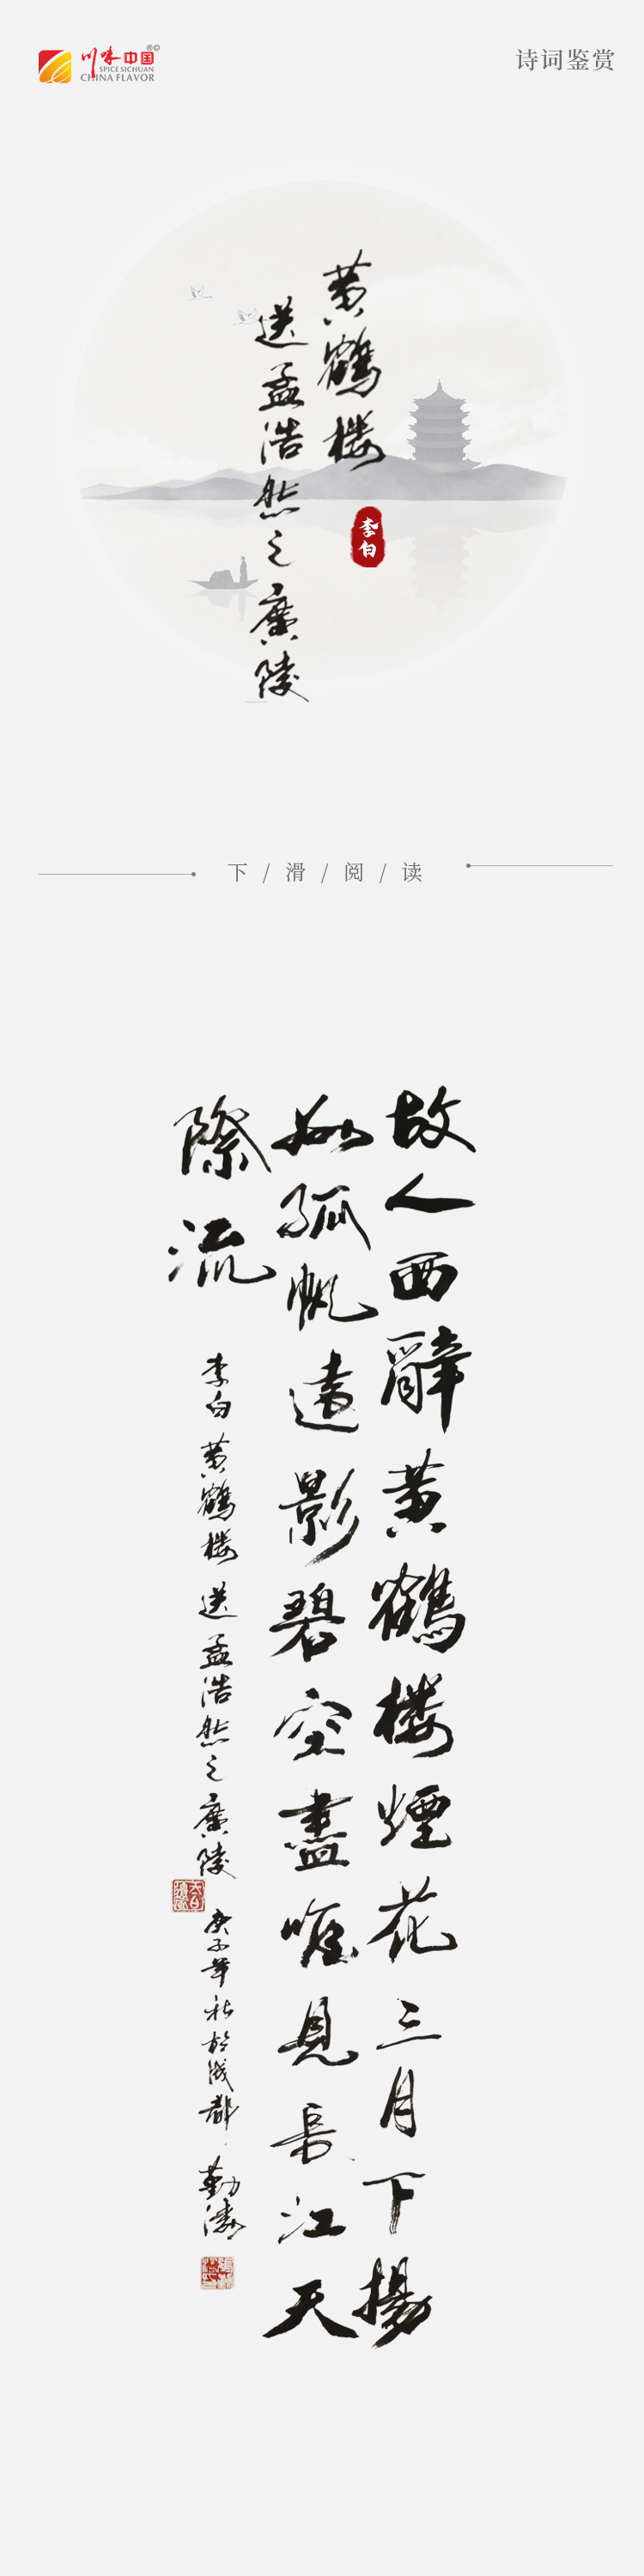 川味中国®©
SPICE SICHUAN
CHINA FLAVOR
诗词鉴赏
黄鶴楼
送孟浩然之廣陵
李白
下 / 滑 / 阅 / 读
故人西辭黄鶴楼煙花三月下揚
州孤帆遠影碧空盡唯見長江天
際流
李白黄鶴楼送孟浩然之廣陵 庚子年秋於成都